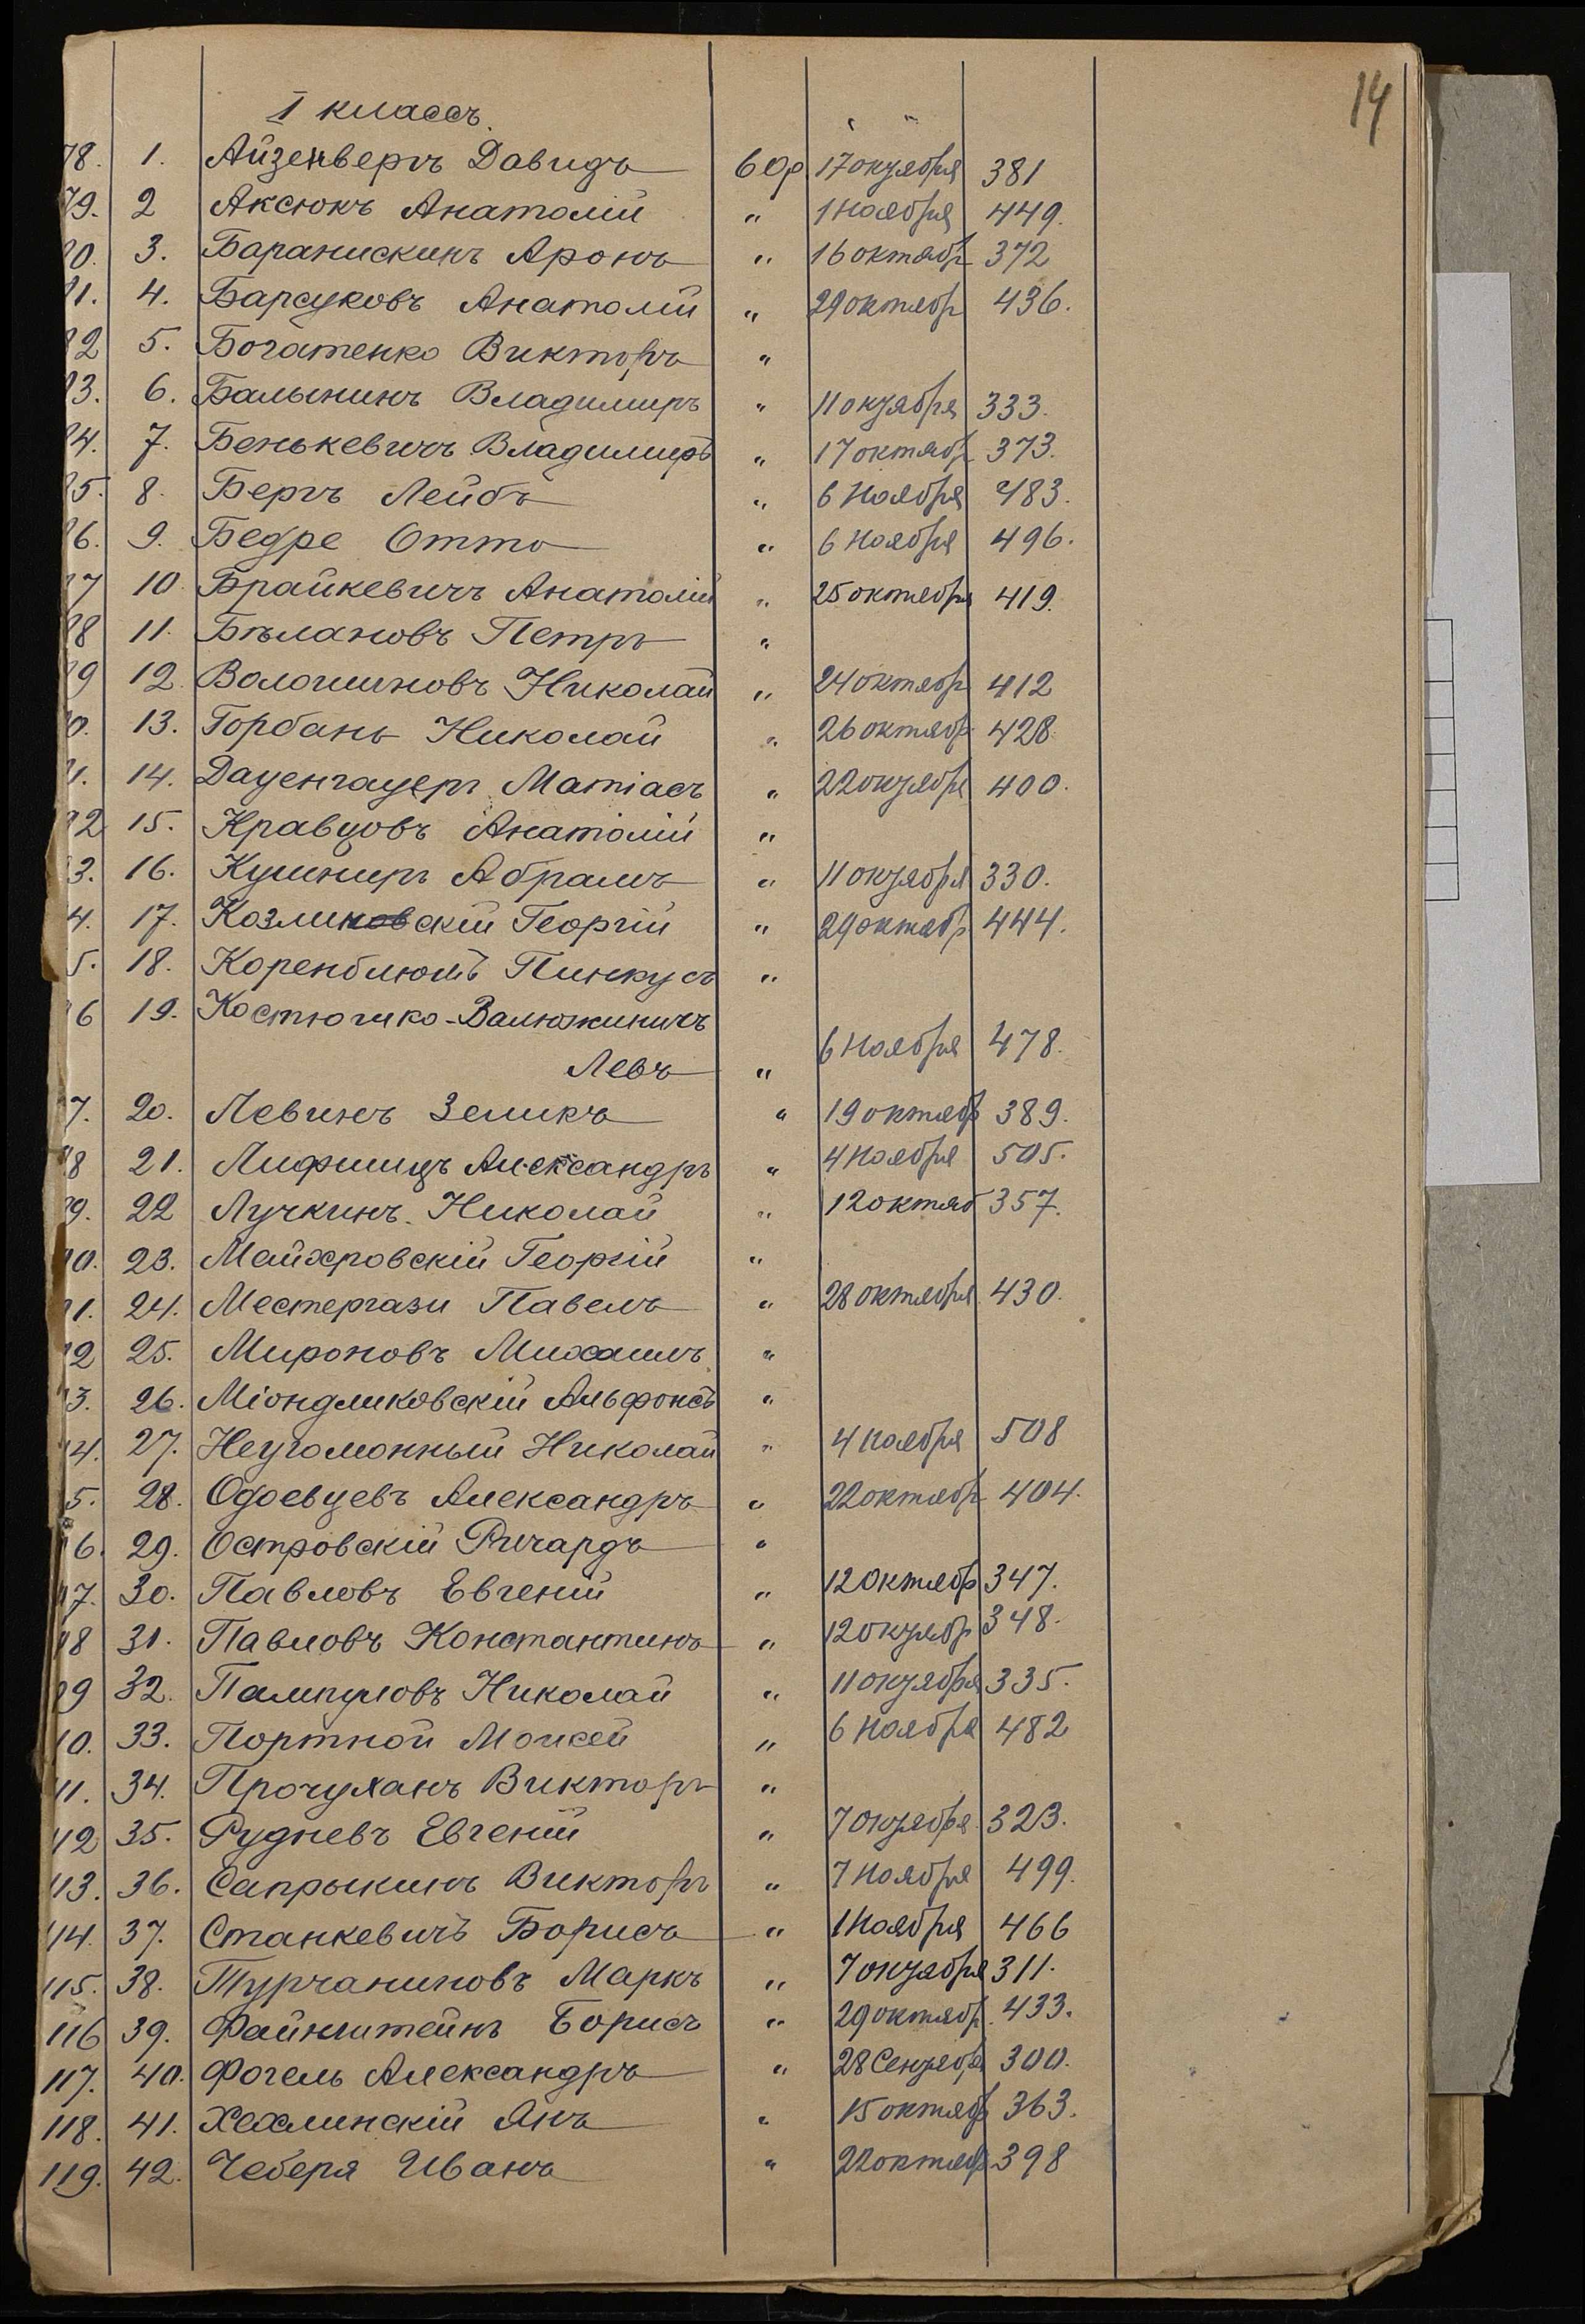 14
I классъ.
78. 1. Айзенвергъ Давидъ 60р 17 октября 381
79. 2 Аксюкъ Анатолій " 1 Ноября 449.
80. 3. Баранискинъ Аронъ " 16 октябр 372
81. 4. Барсуковъ Анатолій " 29 октябр 436.
82 5. Богатенко Викторъ "
83. 6. Балынинъ Владимиръ " 11 октября 333.
84. 7. Бенькевичъ Владимиръ " 17 октябр 373.
85. 8. Бергъ Лейбъ " 6 Ноября 483.
86. 9. Бедре Отто " 6 Ноября 496.
87 10 Брайкевичъ Анатолій " 25 октября 419.
88 11. Бѣлановъ Петръ "
89 12. Волошиновъ Николай " 24 октябр 412
90. 13. Горбань Николай " 26 октябр 428
91. 14. Дауенгауеръ Матіасъ " 22 октября 400.
92 15. Кравцовъ Анатолій "
93. 16. Кушниръ Абрамъ " 11 октября 330.
94. 17. Козлинскій Георгій " 29 октябр 444.
95. 18. Коренблюмъ Пинкусъ "
96 19. Костюшко-Валюжиничъ
Левъ " 6 Ноября 478.
97. 20. Левинъ Зеликъ " 19 октябр 389.
98 21. Лифшицъ Александръ " 4 Ноября 505.
99. 22 Лучкинъ Николай " 12 октяб 357.
100. 23. Майхровскій Георгій "
101. 24. Местергази Павелъ " 28 октября 430.
102 25. Мироновъ Михаилъ "
103. 26. Міондликовскій Альфонсъ "
104. 27. Неугомонный Николай " 4 Ноября 508
105. 28. Одоевцевъ Александръ " 22 октябр 404.
106. 29. Островскій Ричардъ "
107. 30. Павловъ Евгеній " 12 Октябр 347.
108 31. Павловъ Константинъ " 12 октябр 348.
109 32. Пампуловъ Николай " 11 октября 335.
110. 33. Портной Моисей " 6 Ноября 482
111. 34. Прочуханъ Викторъ "
112 35. Рудневъ Евгеній " 7 Октября 323.
113. 36. Сапрыкинъ Викторъ " 7 Ноября 499.
114. 37. Станкевичъ Борисъ " 1 Ноября 466
115. 38. Турчаниновъ Маркъ " 7 октября 311.
116 39. Файнштейнъ Борисъ " 29 октябр. 433.
117. 40. Фогель Александръ " 28 Сентября 300.
118. 41. Хехлинскій Янъ " 15 октябр 363.
119. 42. Чеберя Иванъ " 22 октябр 398